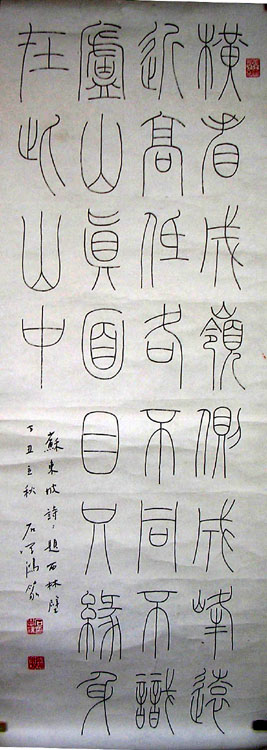 橫看成嶺側成峰遠
近高低各不同不識
盧山眞面目只緣身
在此山中
蘇東坡詩、題西林壁
丁丑立秋